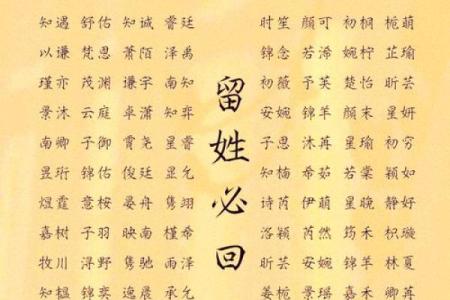 知遇 舒佑 知诚 睿廷
以谦 梵思 萧陌 泽禹
瑾亦 茂渊 谦宇 南知
景沐 云庭 卓潇 知弈
南卿 子御 霄尧 星睿
昱珩 锦佑 俊廷 昱允
煜霆 意桉 晏舟 隽翊
嘉树 子羽 映南 槿希
牧川 浔野 隽驰 雨泽
知韫 锦奕 逸晨 承允
留姓必回
时笙 颜可 初桐 栀萌
锦念 若浠 婉柠 芷瑜
初薇 予芙 楚怡 昕芸
安婉 锦羊 颜末 星妍
子思 沐苒 星瑜 初穷
知柚 希茹 若棠 颖如
诗芮 伊萌 星晚 静好
洛颖 芮然 筠禾 枳漩
昕芸 安婉 锦羊 林夏
姜栀 景瑶 嘉禾 卿苒